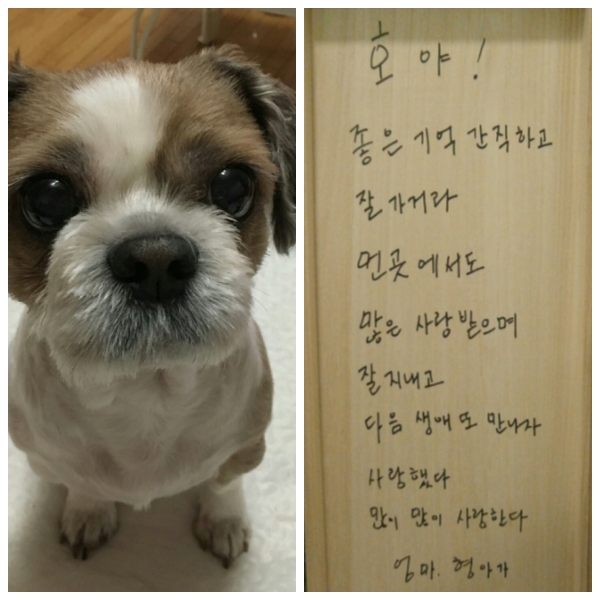 호야!
좋은 기억 간직하고
잘 가거라
먼곳에서도
많은 사랑받으며
잘 지내고
다음 생애 또 만나자
사랑했다
많이 많이 사랑한다
엄마. 형아가